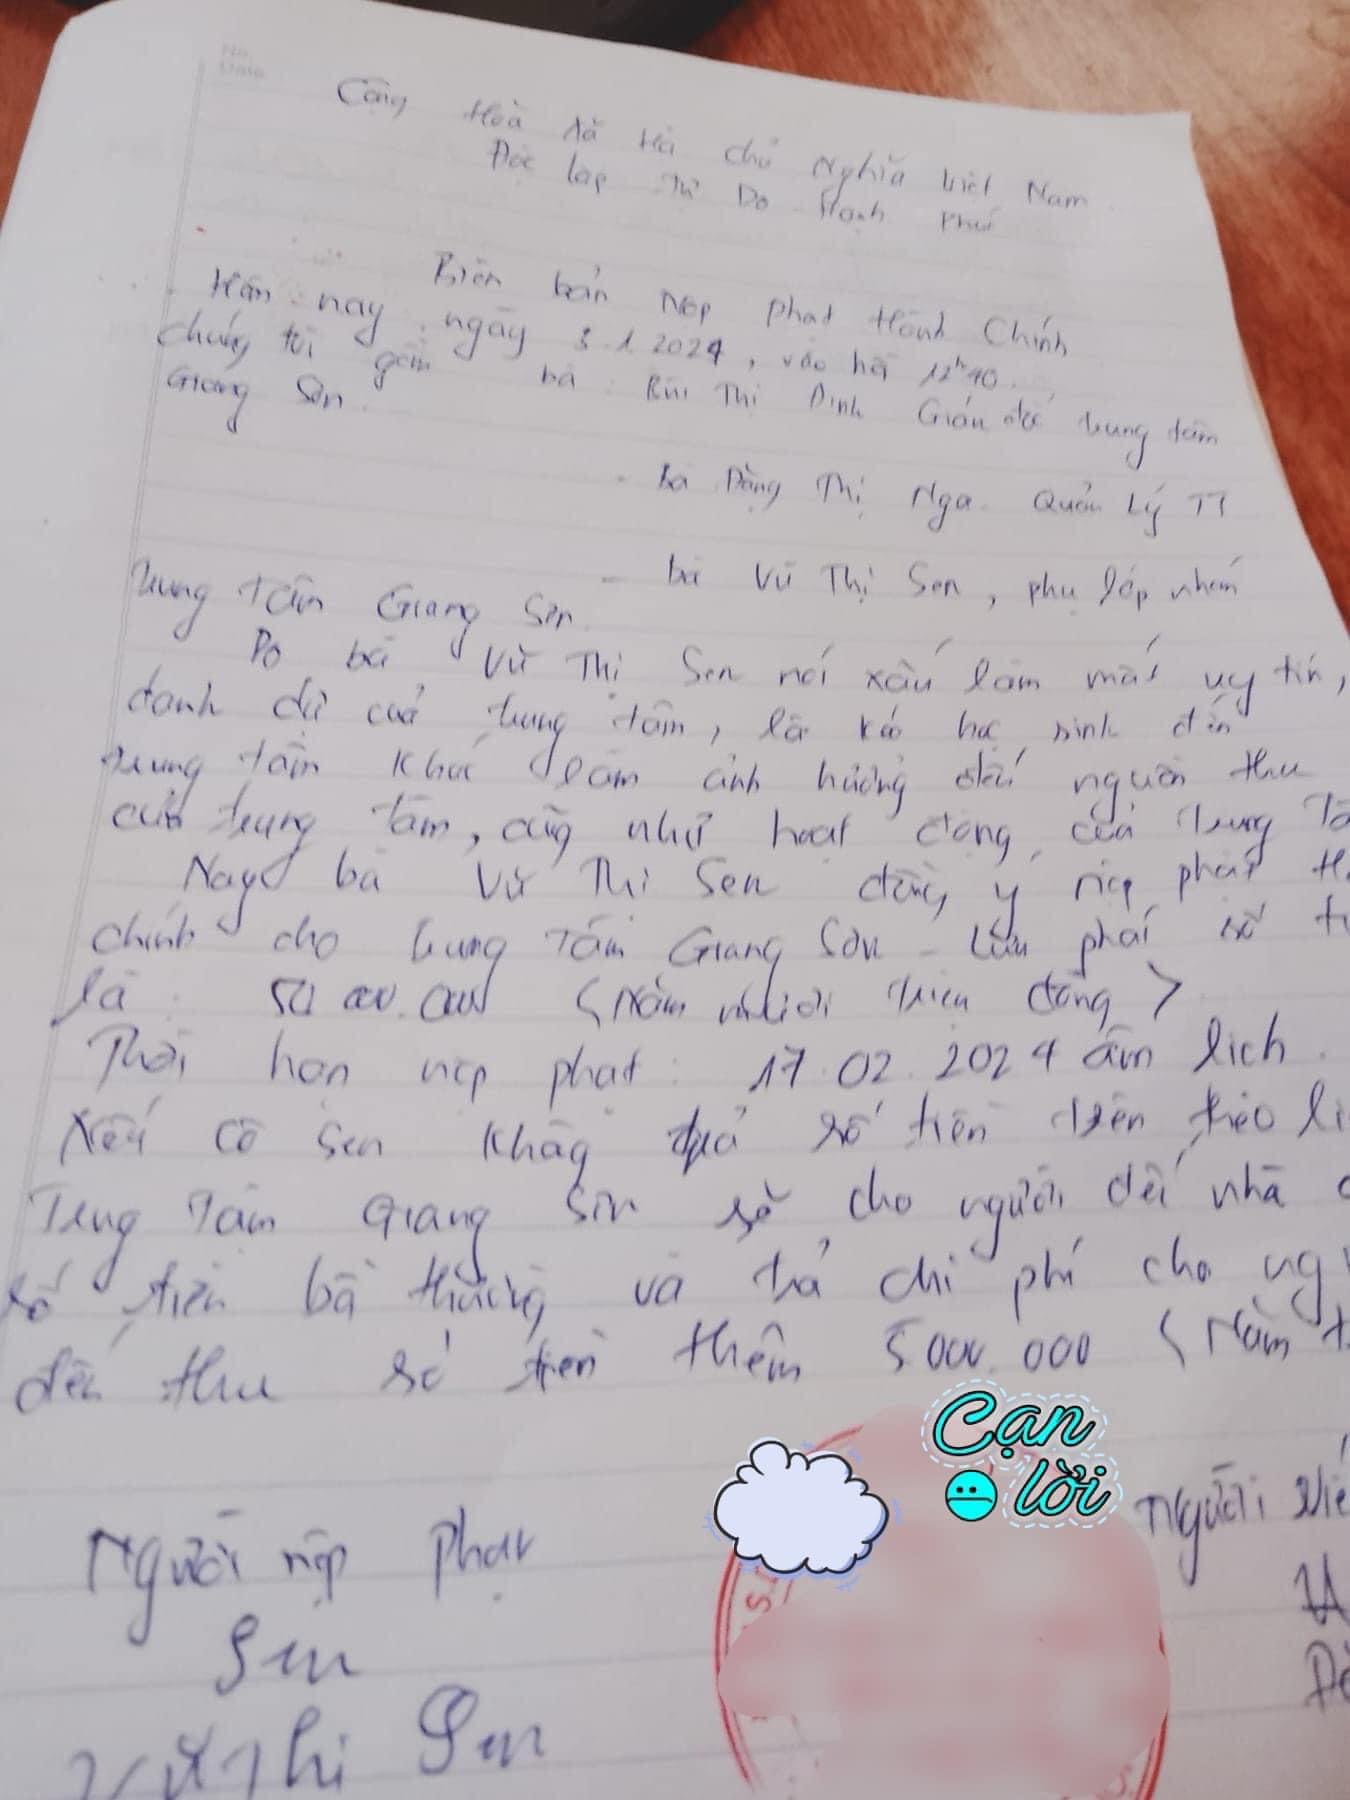 No.
Date
Cộng Hoà Xã Hội chủ Nghĩa Việt Nam
Độc lập Tự Do Hạnh Phúc
Biên bản Nộp phạt Hành Chính
Hôm nay ngày 3.1.2024, vào hồi 12h40.
chúng tôi gồm bà: Bùi Thị Dinh Giám đốc trung tâm
Giang Sơn.
- bà Đặng Thị Nga. Quản Lý TT
- bà Vũ Thị Sen, phụ lớp nhóm
trung Tâm Giang Sơn.
Do bà Vũ Thị Sen nói xấu làm mất uy tín,
danh dự của trung tâm, lôi kéo học sinh đến
trung tâm khác làm ảnh hưởng đến nguồn thu
của trung tâm, cũng như hoạt động của Trung Tâ
Nay bà Vũ Thị Sen đồng ý nộp phạt H
chính cho trung Tâm Giang Sơn - số t
là: 50.000.000 (Năm mươi triệu đồng)
Thời hạn nộp phạt: 17.02.2024 âm lịch.
Nếu cô Sen không trả số tiền trên theo lị
Trung Tâm Giang Sơn sẽ cho người đến nhà
số tiền bồi thường và trả chi phí cho ng
đến thu số tiền thêm 5000.000 (Năm t
Cạn
lời
Người nộp phạt
Người viế
Sen
Vũ Thị Sen